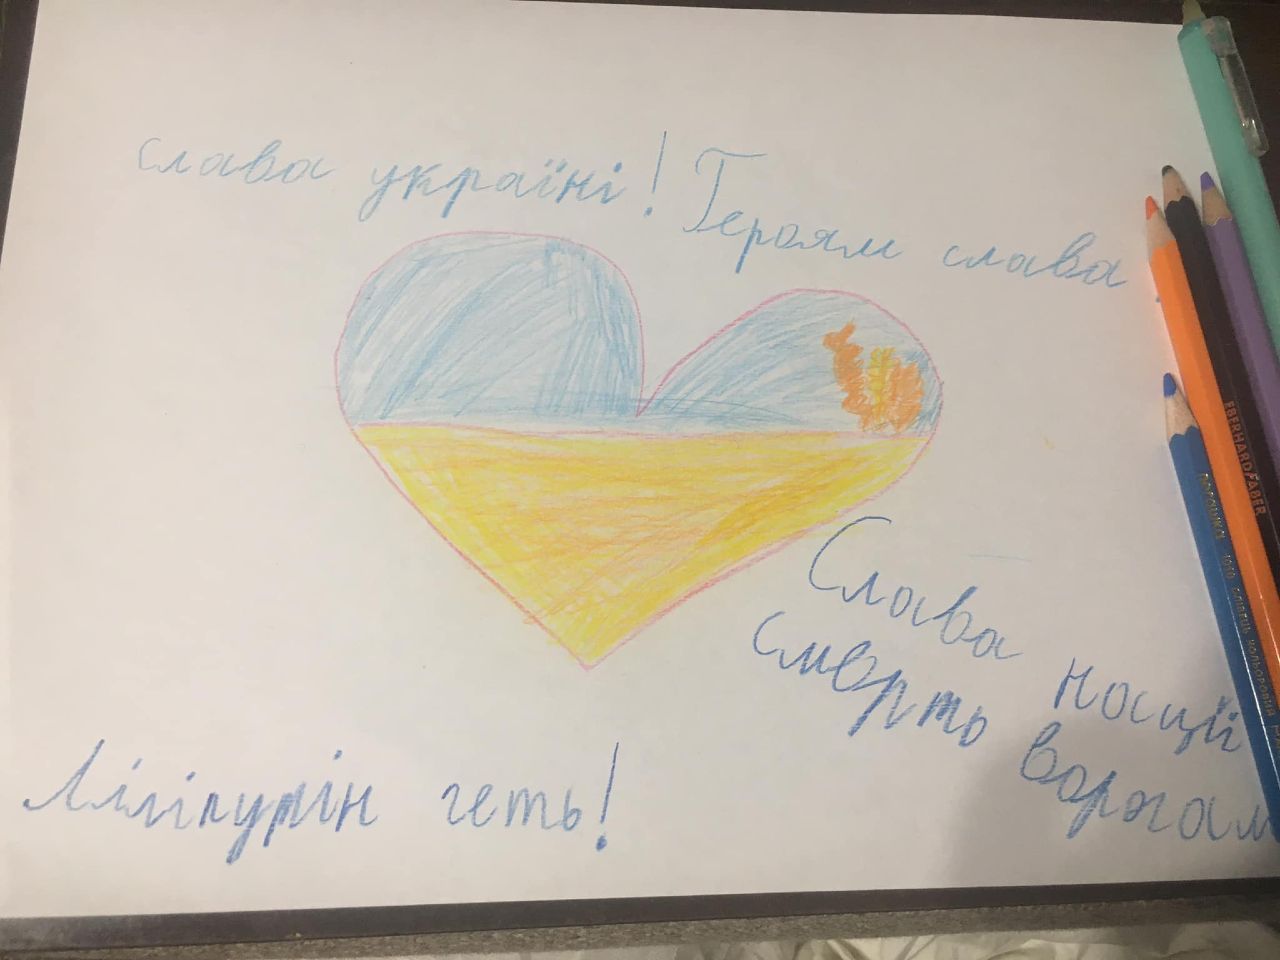 слава україні! Героям слава
Слава нації
смерть ворогам
Лілінурін геть!
EBERHARD FABER